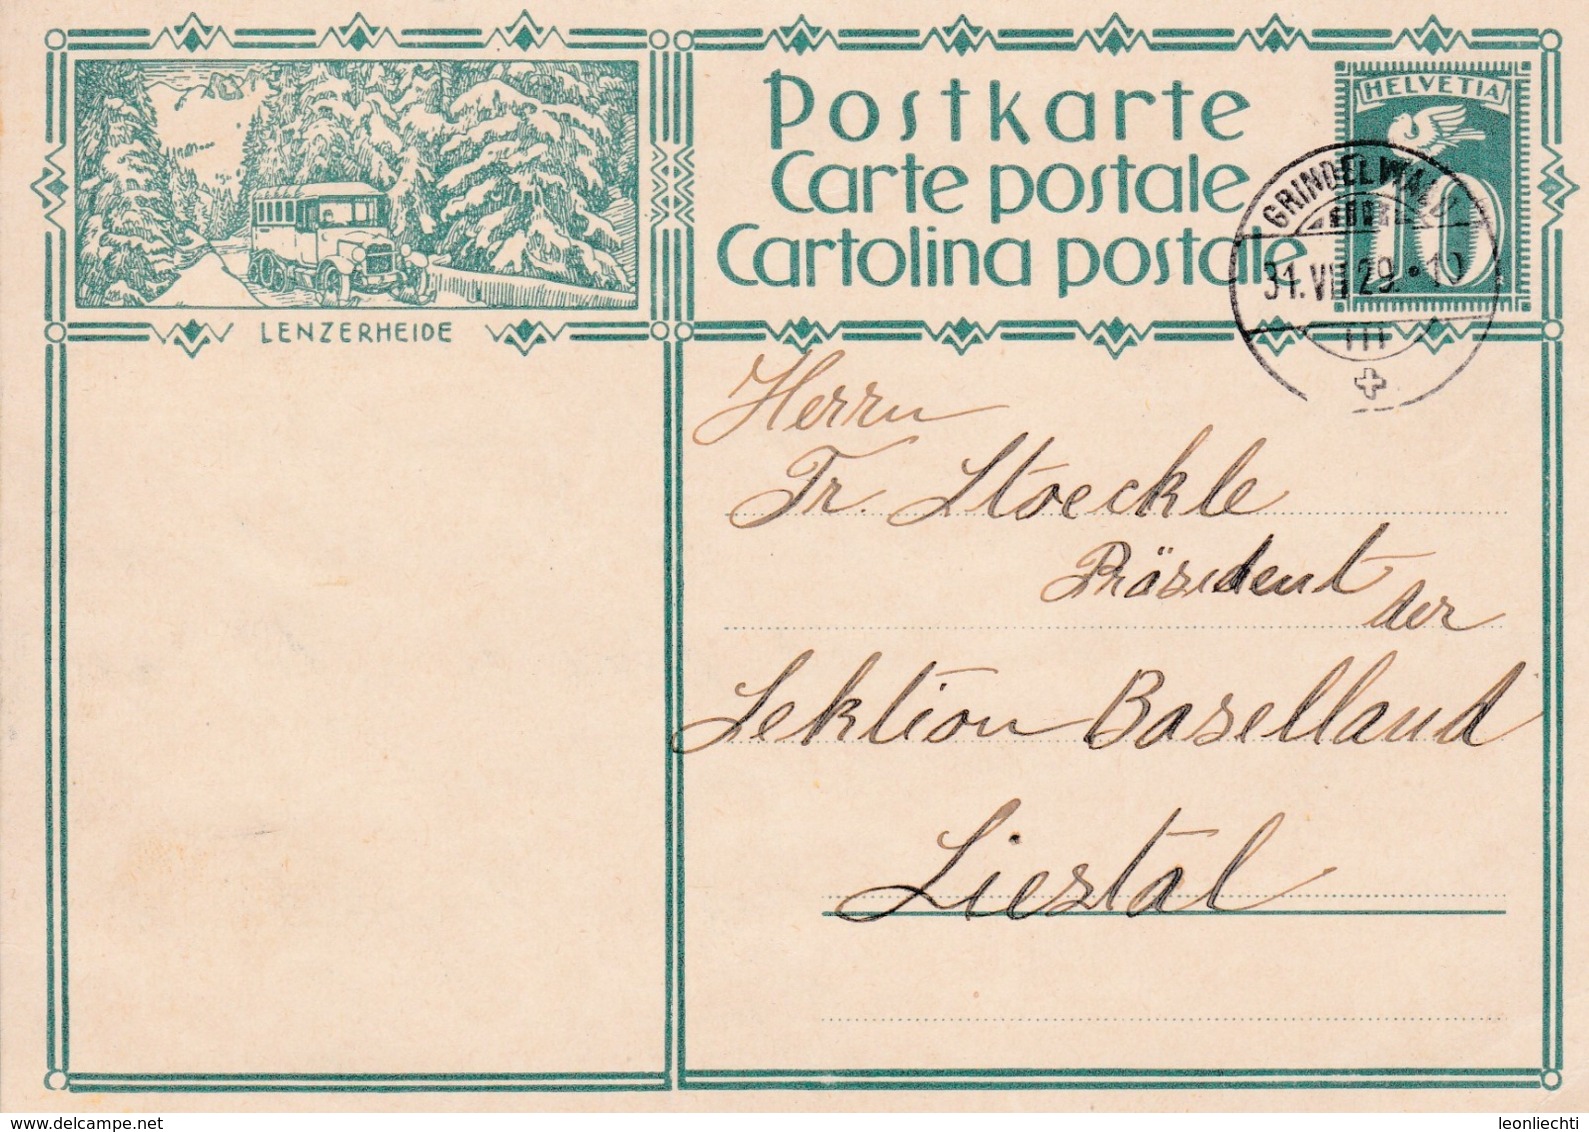 LENZERHEIDE
Postkarte
Carte postale
Cartolina postale
HELVETIA
10
GRINDELWALD
31. VII 29. • 10
III
Herrn
Fr. Stoeckle
Präsident
der
Sektion Baselland
Liestal
www.delcampe.net
leonliechti